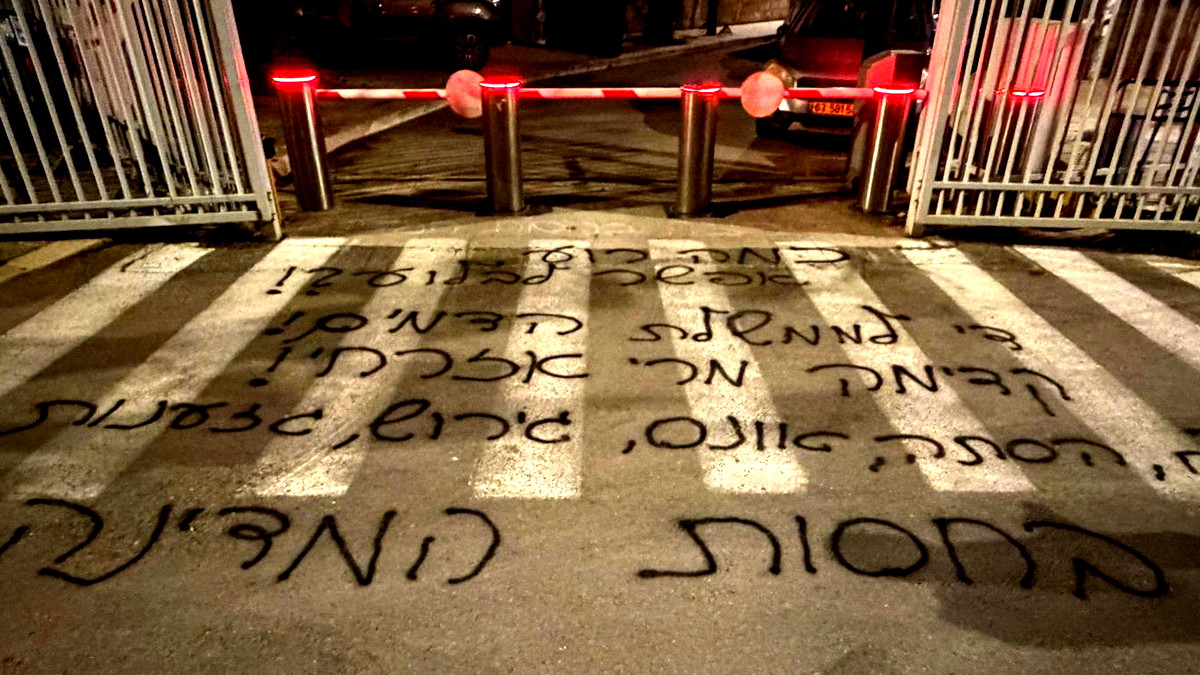 כמה רוע
אפשר לבלוע?!
די לממשלת הדמים!
קדימה מרי אזרחי!
הסתה, אונס, גירוש, גזענות
בחסות המדינה